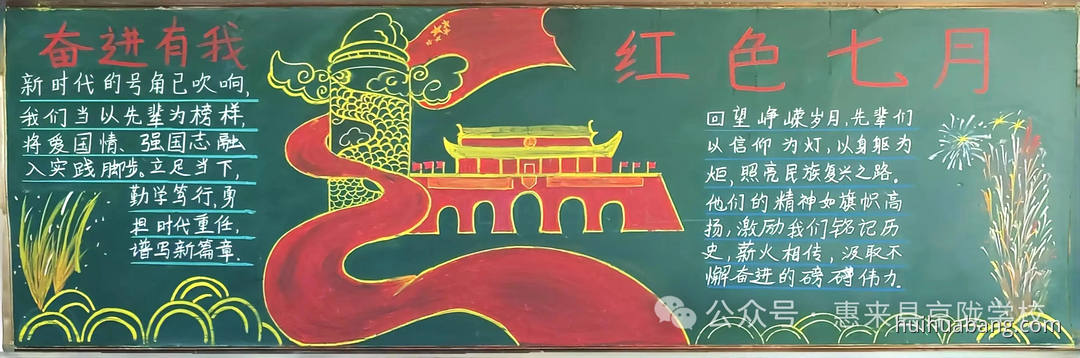 奋进有我
新时代的号角已吹响,
我们当以先辈为榜样,
将爱国情、强国志融
入实践脚步。立足当下,
勤学笃行,勇
担时代重任,
谱写新篇章.
红色七月
回望峥嵘岁月,先辈们
以信仰为灯,以身躯为
炬,照亮民族复兴之路。
他们的精神如旗帜高
扬,激励我们铭记历
史,薪火相传,汲取不
懈奋进的磅礴伟力.
公众号·惠来县京陇学校
huihuabang.com